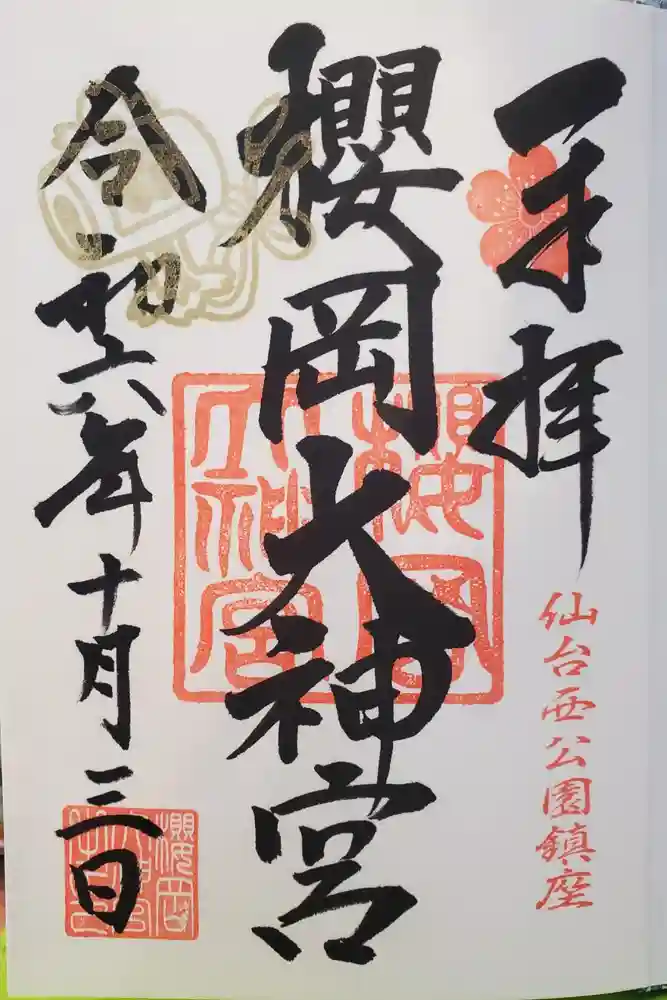 奉拝
仙台西公園鎮座
櫻岡大神宮
櫻岡
大神宮
令和六年十月三日